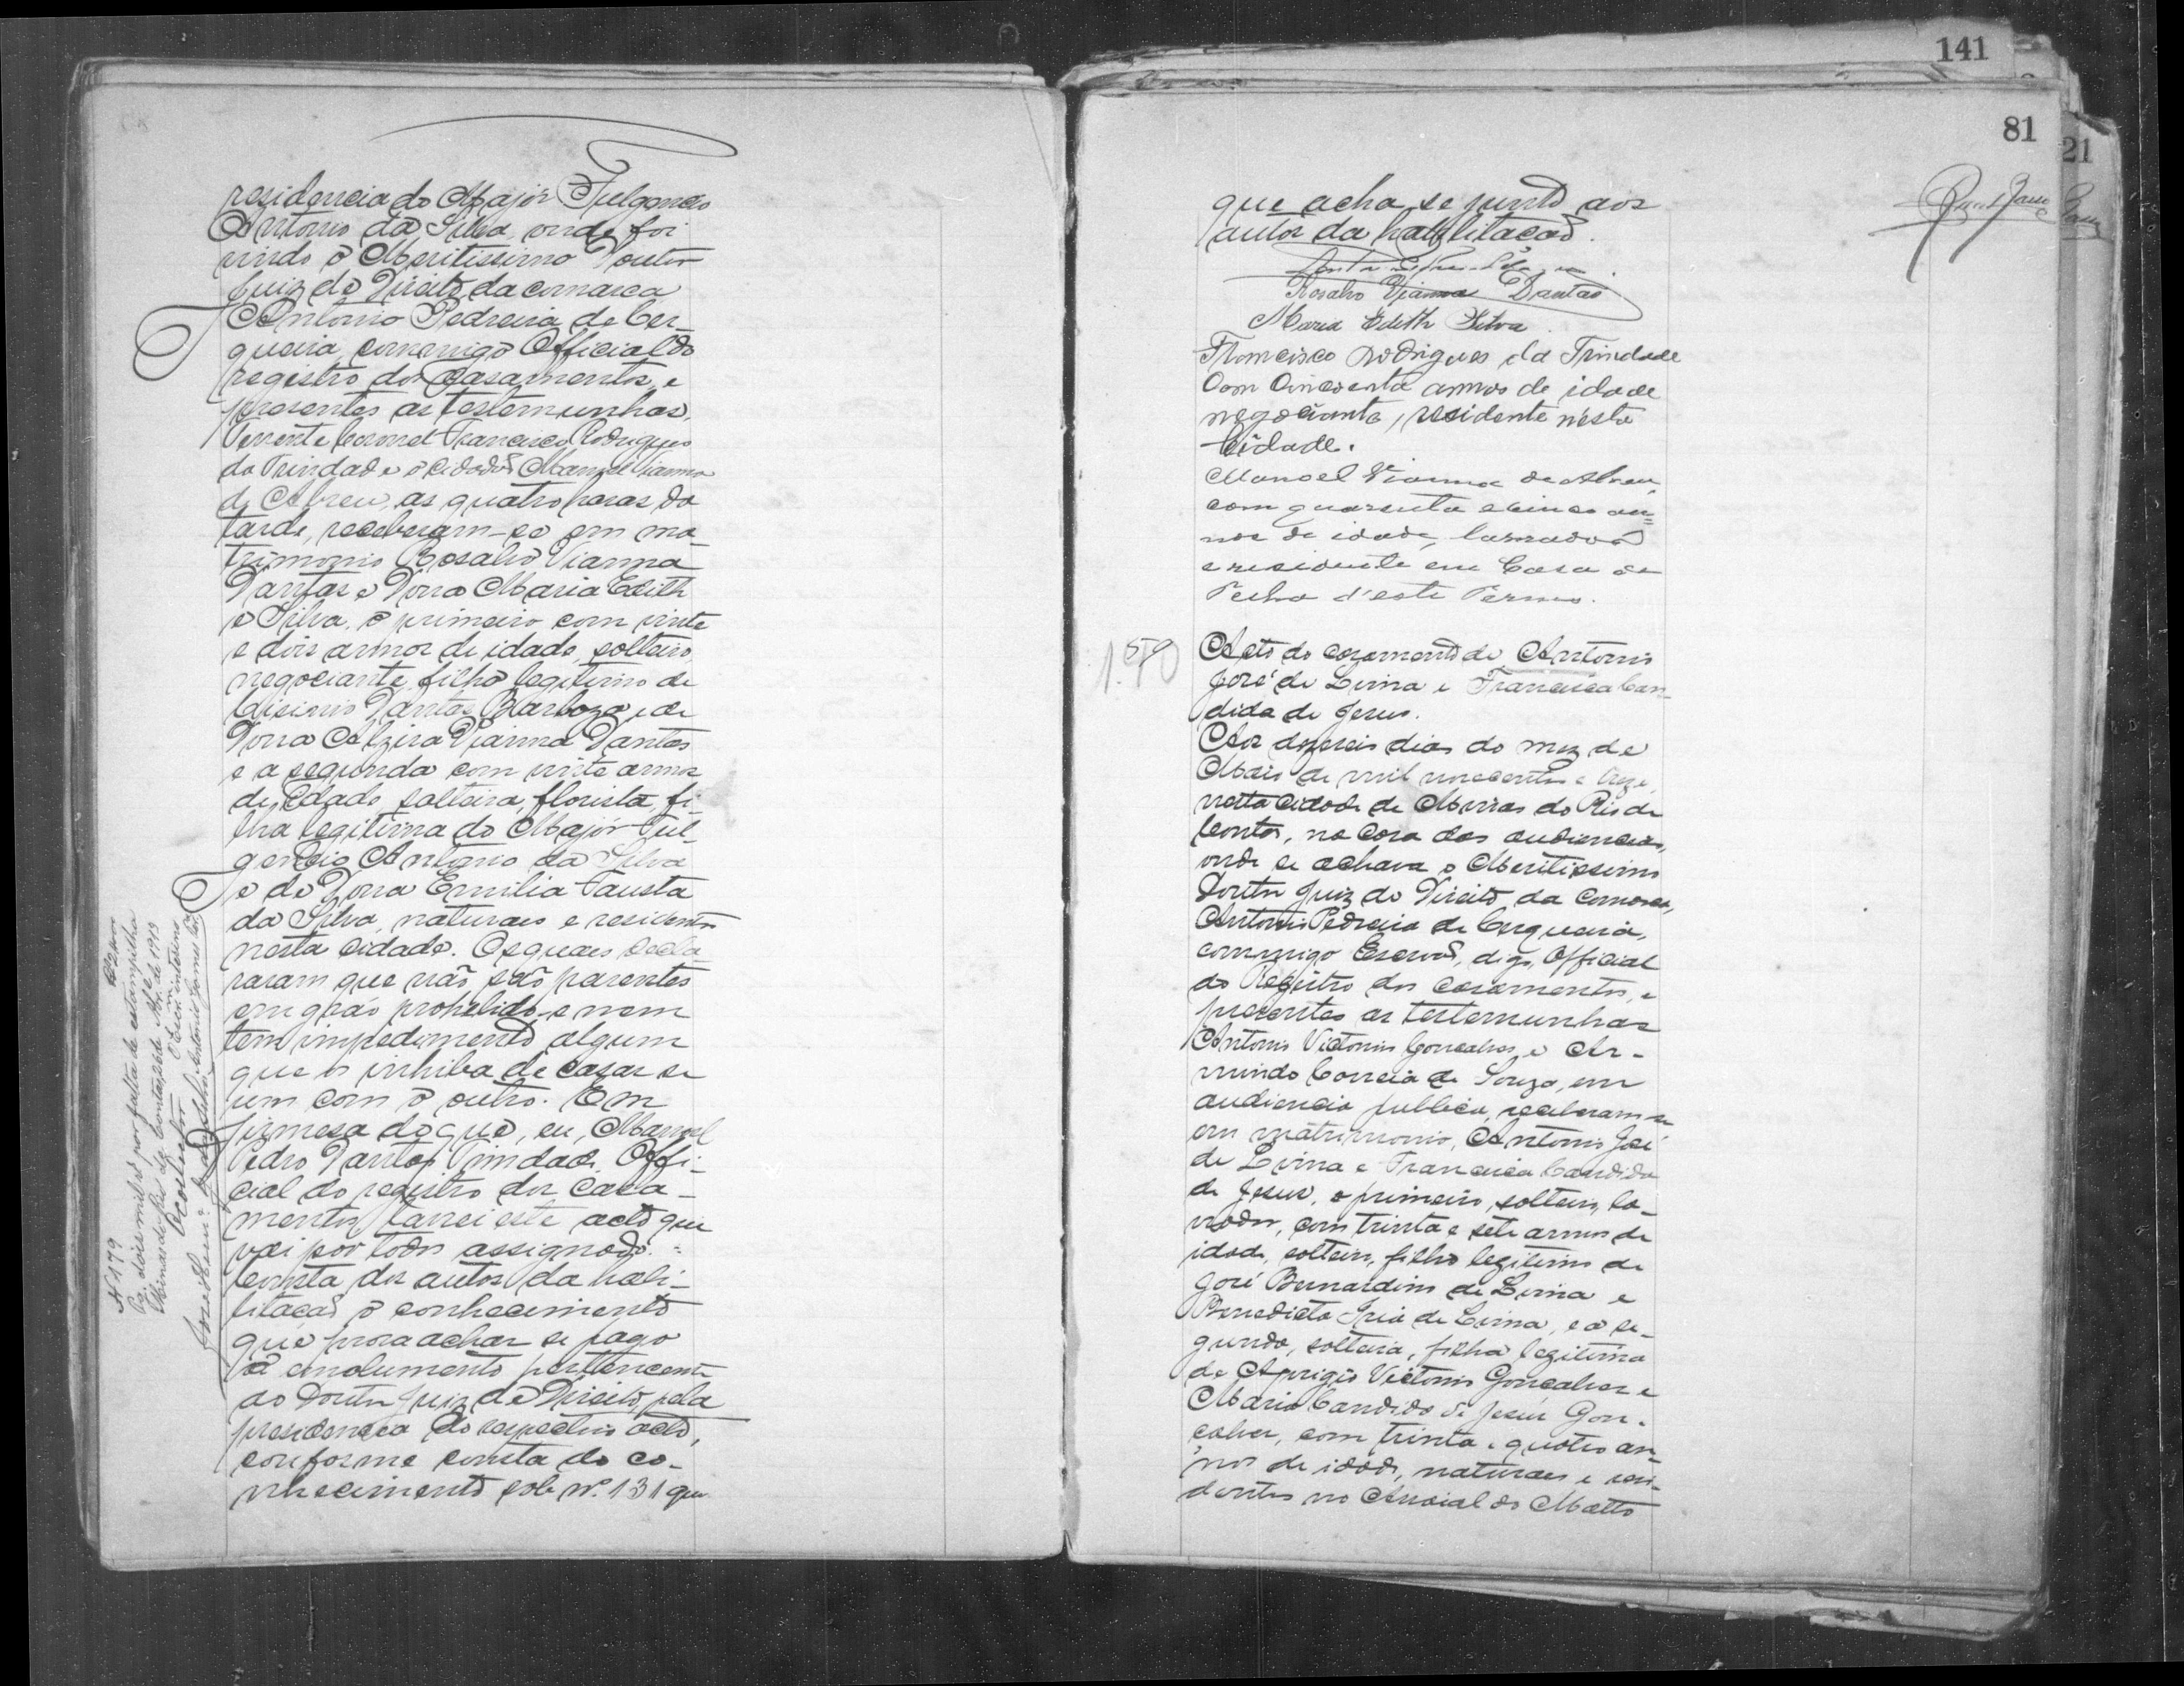 residencia do Major Fulgencio
Antonio da Silva, onde foi
vindo o Meritissimo Doutor
Juiz de Direito da comarca
Antonio Pedreira de Cer-
queira, commigo Official do
registro dos casamentos, e
presentes as testemunhas,
Tenente Coronel Francisco Rodrigues
da Trindade e o cidadão Manoel Vianna
de Abreu, as quatro horas da
tarde, receberam-se em ma-
trimonio Rosalvo Vianna
Dantas e Dona Maria Edith
e Silva, o primeiro com vinte
e dois annos de idade, solteiro,
negociante, filho legitimo de
Dantas Barboza e de
Dona Alzira Vianna Dantas
e a segunda com vinte annos
de edade, solteira, florista, fi-
lha legitima do Major Ful-
gencio Antonio da Silva
e de Dona Emilia Fausta
da Silva, naturaes e residentes
nesta cidade. Os quaes decla-
raram que não são parentes
em gráo prohebido e nem
tem impedimento algum
que os inhiba de casar se
um com o outro. Em
firmesa do que, eu, Manoel
Pedro Dantas Trindade, Offi-
cial do registro dos casa-
mentos, lavrei este acto que
vai por todos assignado. =
Consta dos autos da habi-
litação o conhecimento
que prova achar se pago
o emolumento pertencente
ao Doutor Juiz de Direito, pela
presidencia do respectivo acto,
conforme consta do co-
nhecimento sob nº. 131 que
Nº 179
Pg. dois mil rs por falta de estampilha
Minas do Rio de Contas, 26 de Abr. de 1913
O Collector O Escm. interino
Antonio Gomes
141
81
21
que acha se junto aos
autos da habilitação.
Rosalvo Vianna Dantas
Maria Edith Silva.
Francisco Rodrigues da Trindade
Com Cincoenta annos de idade
negociante, residente nesta
Cidade.
Manoel Vianna de Abreu,
com quarenta e cinco an=
nos de idade, lavrador
e residente em Casa de
Telha d'este Termo.
Acto do casamento de Antonio
José de Lima e Francisca Can-
dida de Jesus.
Aos dezeseis dias do mez de
Maio de mil novecentos e treze,
nesta cidade de Minas do Rio de
Contas, na Casa das audiencias,
onde se achava o Meritissimo
Doutor Juiz de Direito da Comarca,
Antonio Pedreira de Cerqueira,
commigo Escrivão, digo, Official
do Registro dos Casamentos, e
presentes as testemunhas
Antonio Victorio Gonçalves e Ar-
mindo Correia de Souza, em
audiencia publica, receberam se
em matrimonio, Antonio José
de Lima e Francisca Candida
de Jesus, o primeiro, solteiro, la-
vrador, com trinta e sete annos de
idade, solteiro, filho legitimo de
José Bernardino de Lima e
Benedicta Iria de Lima, e a se-
gunda, solteira, filha legitima
de Aprigio Victorio Gonçalves e
Maria Candida de Jesus Gon-
çalves, com trinta e quatro an-
nos de idade, naturaes e resi-
dentes no Arraial do Matto